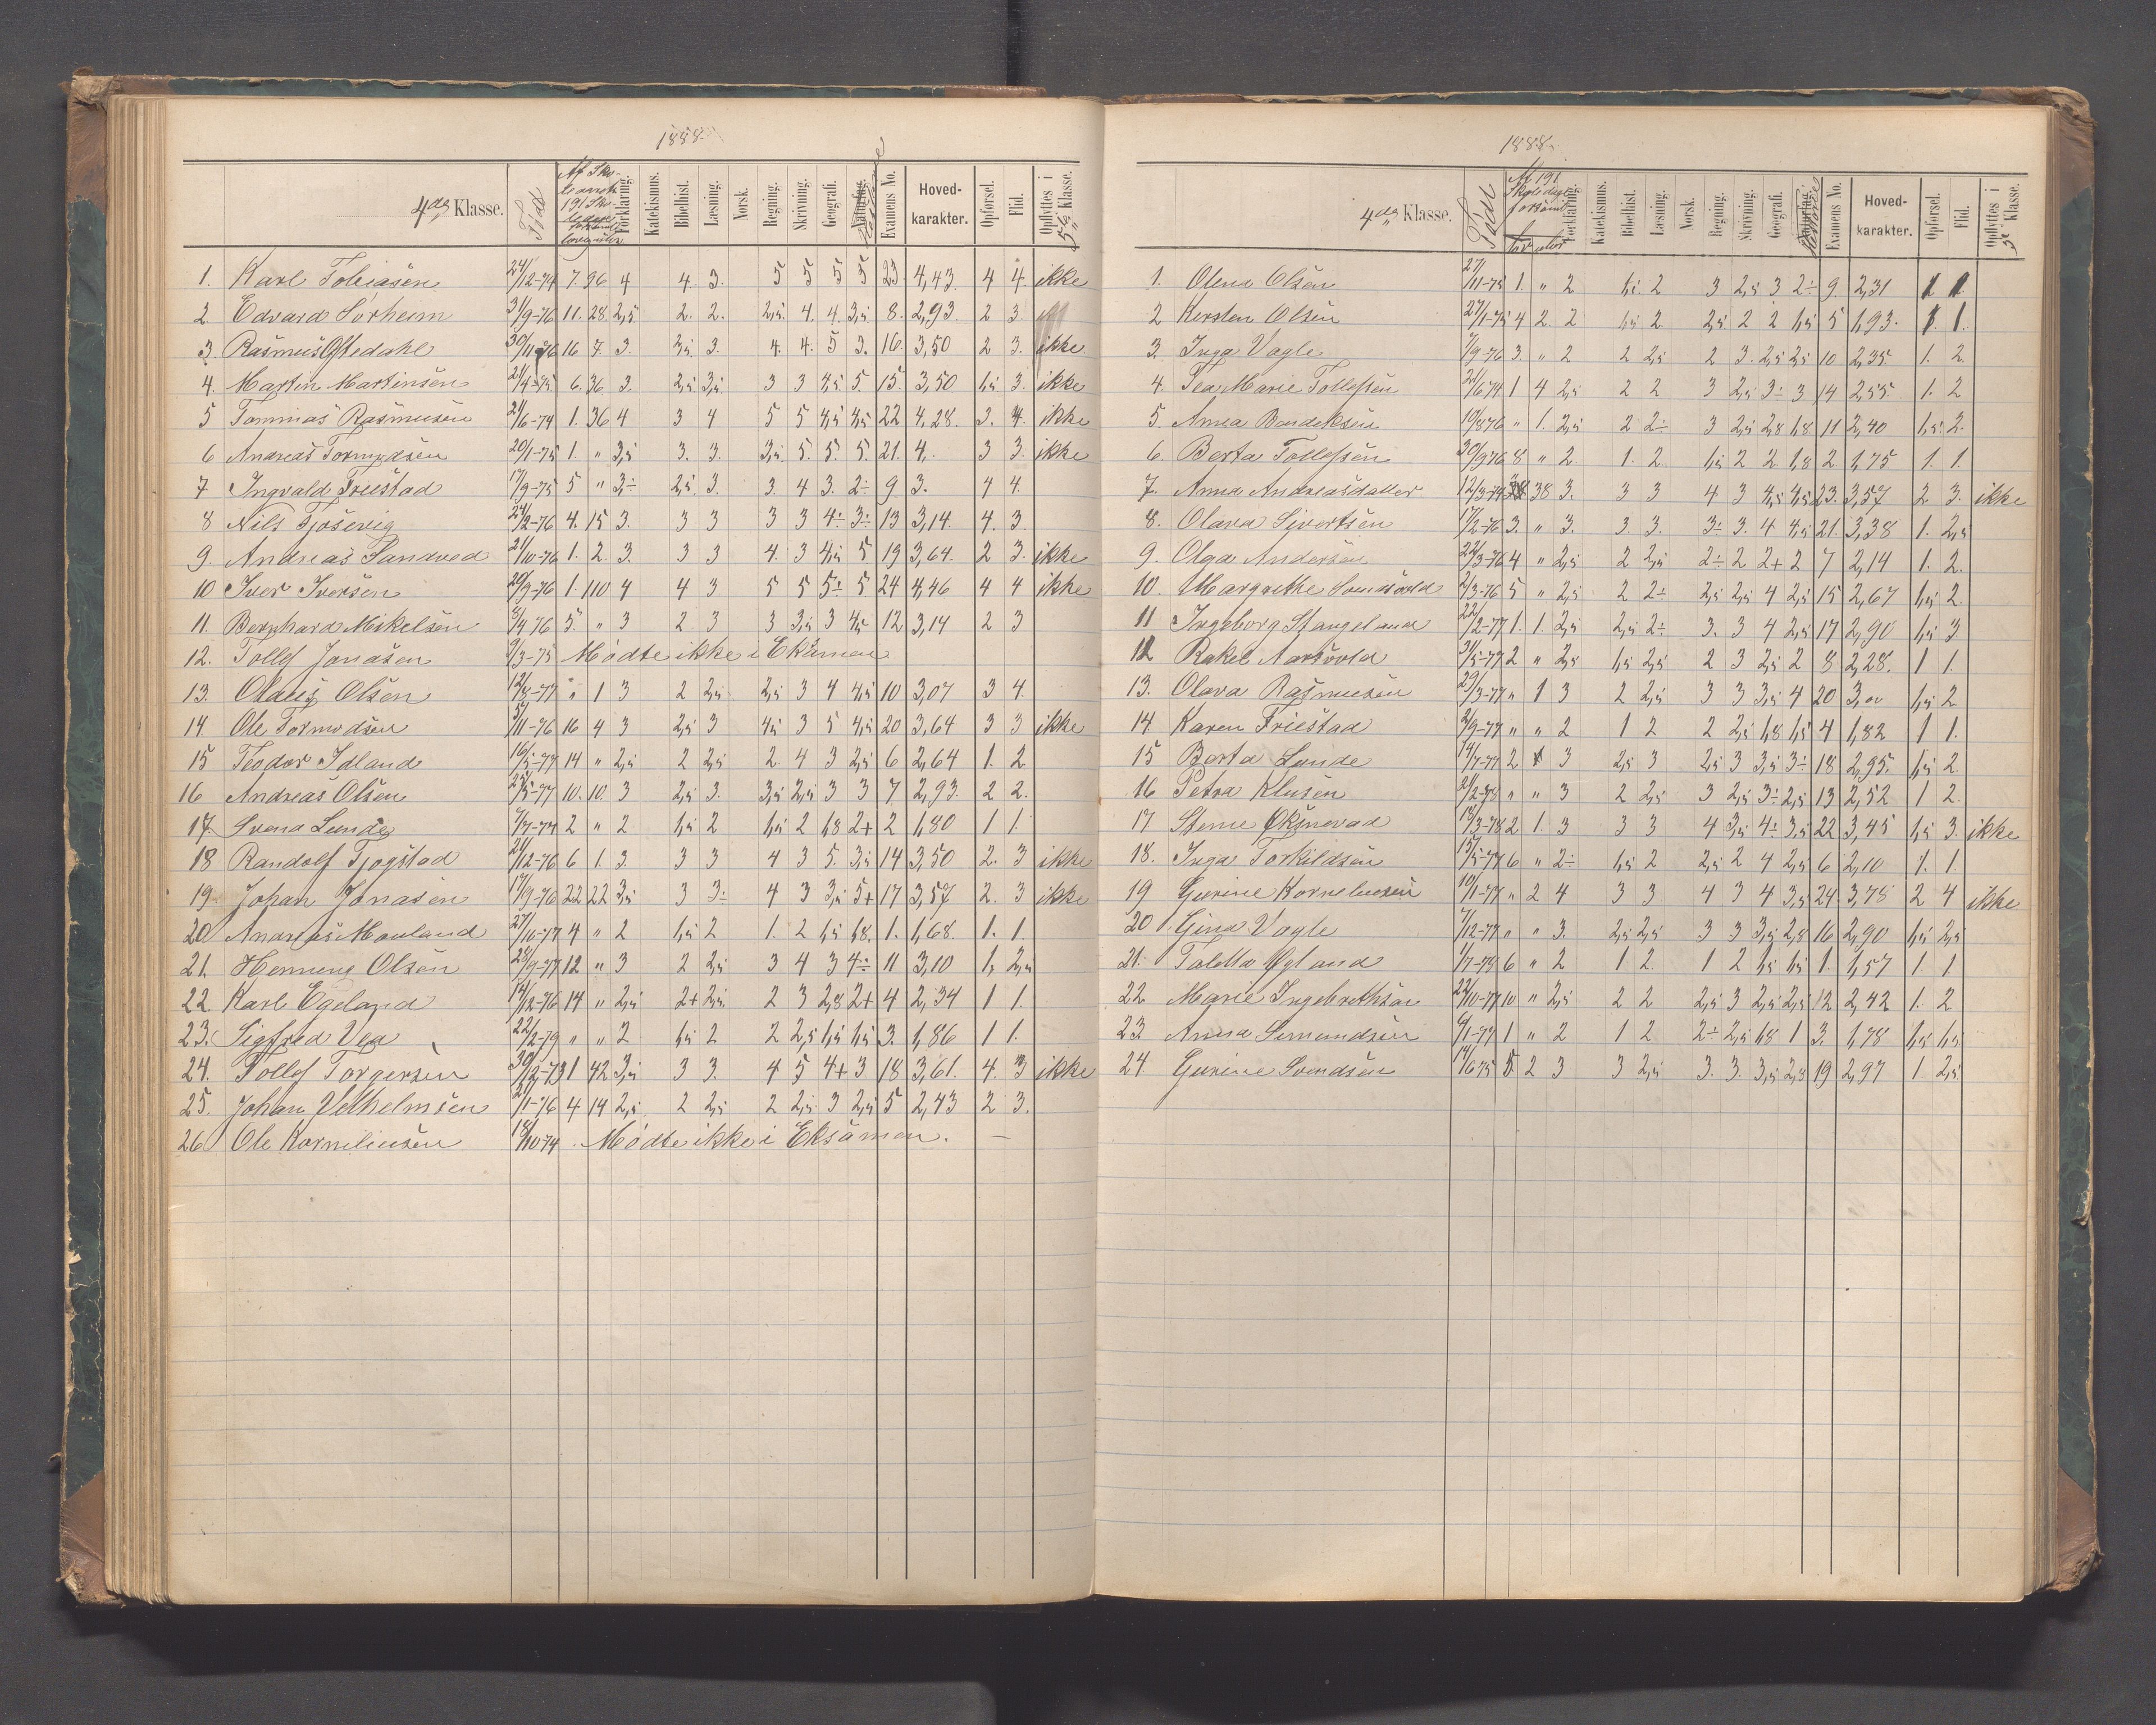 1888
4de Klasse. Født Forklaring. Katekismus. Bibelhist. Læsning. Norsk. Regning. Skrivning. Geografi. Naturfag. Examens No. Hoved-karakter. Opførsel. Flid. Opflyttes i 5te Klasse.
1. Karl Tobiasen 24/12-74 7. 96 4 4. 3. 5 5 5 5 23. 4,43. 4 4. ikke
2 Edvard Sørheim 3/9-76 11. 28. 2,5 2. 2. 2,5. 4. 4. 3,5 8. 2,93. 2 3
3. Rasmus Oftedahl 30/11-76 16 7. 3. 3,5. 3. 4. 4. 5 3. 16. 3,50 2 3. ikke.
4. Martin Martinsen 24/4-75 6. 36 3. 2,5 3,5. 3 3 4,5 5 15. 3,50. 1,5. 3. ikke
5 Tommas Rasmusen 21/6-74 1. 36 4 3 4 5 5 4,5 4,5 22 4,28. 3. 4. ikke
6 Andreas Tormodsen 20/1-75 1. " 3,5 3. 3. 3,5. 5. 5. 5. 21. 4,. 3 3. ikke
7 Ingvald Friestad 17/9-75 5 " 3,÷ 2,5. 3. 3. 4 3. 2÷ 9 3. 4 4.
8 Nils Tjosevig 24/2-76 4. 15 3. 3 3 3 3 4÷ 3÷ 13 3,14. 4. 3.
9. Andreas Sandved 21/10-76 1. 2. 3. 3 3 4. 3 4,5 5 19 3,64. 2 3. ikke
10 Iver Iversen 29/9-76 1. 110 4 4 3 5 5 5÷ 5 24 4,46 4 4 ikke
11. Bernhard Mikelsen 8/4 76 5. " 3 2 3 3 3,5 3 4,5 12 3,14 2 3
12. Tollef Jonasen 9/3-75 Mødte ikke i Eksamen
13. Olaus Olsen 12/8-77 " 1 3 2 2,5 2,5 3 4 4,5 10 3,07 3 4.
14. Ole Tormodsen 5/11-76 16 4 3 2,5 3 4,5 3 5 4,5 20 3,64 3 3 ikke
15 Teodor Idland 16/5-77 14 " 2,5 2 2,5 2. 4 3 2,5 6 2,64 1. 2
16 Andreas Olsen 25/5-77 10. 10. 3 2,5 3. 3,5 2,5 3 3 7 2,93. 2 2.
17. Svend Lunde 7/7-77 2 " 2 1,5 2 1,5 2 1,8 2+ 2 1,80 1 1.
18 Randolf Tjogstad 24/12-76 6 1. 3. 3 3 4 3 5. 3,5 14 3,50 2. 3 ikke
19. Johan Jonasen 17/9-76 22 22 3,5 3 3÷ 4 3 3,5 5+ 17 3,57 2. 3 ikke
20 Andreas Mauland 27/10-77 4 " 2 1,5 2 1. 2 1,5 1,8. 1. 1,68. 1. 1.
21. Henning Olsen 28/9-77 12 " 3 2 2,5 3 4 3 4÷ 11 3,10 1, 2,5
22. Karl Egeland 14/12-76 14 " 2,5 2+ 2,5 2 3 2,8 2+ 4 2,34 1 1.
23. Sigfred Vea 22/2-79 " " 2 1,5 2 2 2,5 1,5 1,5 3. 1,86 1 1.
24. Tollef Torgersen 30/12-73 1 42 3,5 3 3. 4 5 4+ 3 18 3,61. 4. 3 ikke
25. Johan Velhelmsen 2/1-76 4 14 2,5 2 2,5 2 2,5 3 2,5 5 2,43 2 3.
26 Ole Korneliusen 18/10-74 . Mødte ikke i Eksamen. —
1888.
4de Klasse. Født Forklaring. Katekismus. Bibelhist. Læsning. Norsk. Regning. Skrivning. Geografi. Naturfag. Historie Examens No. Hoved-karakter. Opførsel. Flid. Opflyttes i 5te Klasse.
1. Olena Olsen 27/11-75 1. " 2 1,5. 2 3 2,5 3 2÷ 9. 2,31 1 1.
2 Kirsten Olsen 27/1-75 4 2. 2 1,5 2. 2,5. 2 2 1,5 5 1,93. 1. 1.
3. Inga Vagle 7/9-76 3. " 2 2 2,5 2 3. 2,5 2,5 10 2,35 1. 2.
4. Tea Marie Tollefsen 21/6 74 1 4 2,5 2 2 3 2,5 3÷ 3 14 2,55. 1. 2
5. Anna Bendeksen 10/8 76 " 1. 2,5 2 2÷ 3 2,5 2,8 1,8 11 2,40 1,5. 2.
6. Berta Tollefsen 30/9 76 8 " 2 1. 2 1,5 2 2. 1,8 2. 1,75 1. 1.
7. Anna Andreasdatter 12/3-74 38 38 3. 3 3 4 3 4,5 4,5 23. 3,57 2 3. ikke
8. Olava Sivertsen 17/2-76 3. " 3. 3. 3. 3÷ 3. 4 4,5 21. 3,38 1. 2,5
9. Olga Andersen 22/3-76 4 " 2,5 2 2,5 2÷ 2 2+ 2 7 2,14 1. 2.
10. Margrethe Svendsvold 2/3-76 5 " 2,5 2 2÷ 2,5 2,5 4 2,5 15 2,67 1,5 2.
11 Ingeborg Stangeland 22/2-77 1. 1. 2,5 2,5 2÷ 3. 3 4 2,5 17 2,90 1,5 3
12 Rakel Aarsvold 31/5-77 2 " 2,5 1,5 2,5 2 3 2,5 2 8 2,28. 1 1.
13. Olava Rasmusen 29/3-77 " 1 3 2 2,5 3 3 3,5 4 20 3,00 1,5 2
14. Karen Friestad 2/9-77 " " 2 1 2 2 2,5 1,8 1,5 4 1,82 1 1.
15 Berta Lunde 19/7-77 2 1 3 2,5 3 2,5 3 3,5 3÷ 18 2,95. 1,5 2.
16 Petra Klusen 21/2-78 " " 3 2 2,5 3 2,5 3÷ 2,5 13 2,52 1 2.
17 Stene Øksnevad 19/3-78 2 1. 3 3 3 4 3,5 4÷ 3,5 22 3,45 1,5 3. ikke
18. Inga Torkildsen 15/5-77 6 " 2÷ 1,5 2 2,5 2 4 2,5 6 2,10 1. 1.
19 Gurine Korneliusen 10/1-77 " 2 4 3 3 4 3 4 3,5 24. 3,78 2 4 ikke
20. Gina Vagle 7/12-77 " " 3. 2,5 2,5 3 3 3,5 2,8 16 2,90 1,5 2,5
21. Taletta 1/7-78 6 " 2 1 2. 1 2 1,5 1,5 1. 1,57 1. 1
22 Marie Ingebrethsen 22/10-77 10 " 2,5 2 2 2,5 3 2,5 2,5 12 2,42 1. 2
23 Anna Simundsen 6/1-77 1 " 2 1 2 2÷ 2,5 1,8 1 3. 1,78 1,5 1,5
24. Gurine Svendsen 14/6 75 5. 2 3 3 2,5 3. 3. 3,5 2,8 19 2,97 1. 2,5